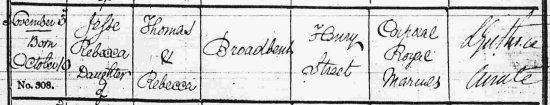 November 3
Born
October 10
No. 308.
Jesse
Rebecca
Daughter
of
Thomas
&
Rebecca
Broadbent
Henry
Street
Corporal
Royal
Marines
Curate